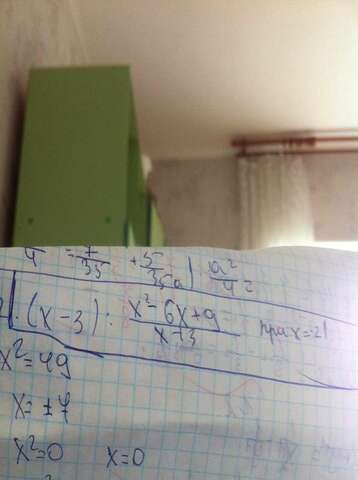 = 7/35 + 5/35a | a²/4²
(x-3) : x²-6x+9 / x+3 при x=-21
x²=49
x=±7
x²=0 x=0